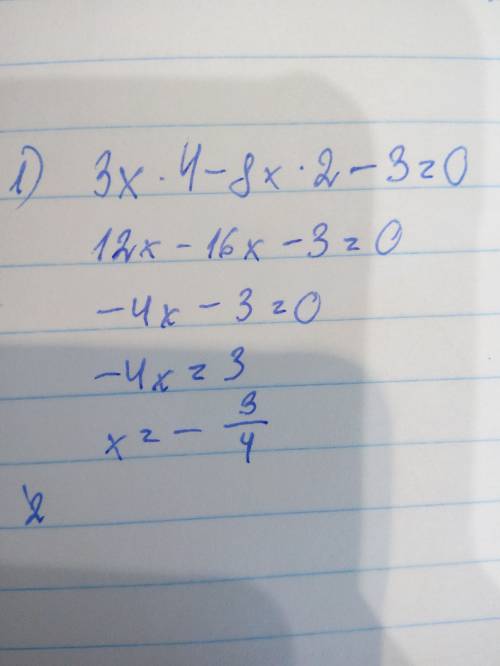 1) 3x · 4 - 8x · 2 - 3 = 0
12x - 16x - 3 = 0
-4x - 3 = 0
-4x = 3
x = - 3/4
2